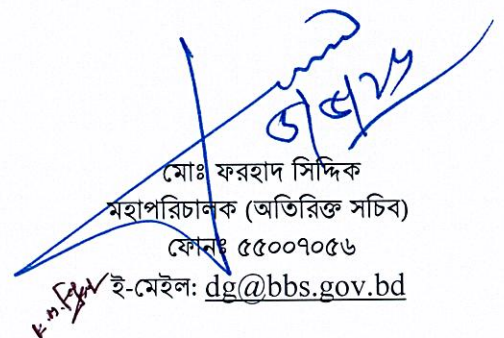 মোঃ ফরহাদ সিদ্দিক
মহাপরিচালক (অতিরিক্ত সচিব)
ফোনঃ ৫৫০০৭০৫৬
ই-মেইল: dg@bbs.gov.bd